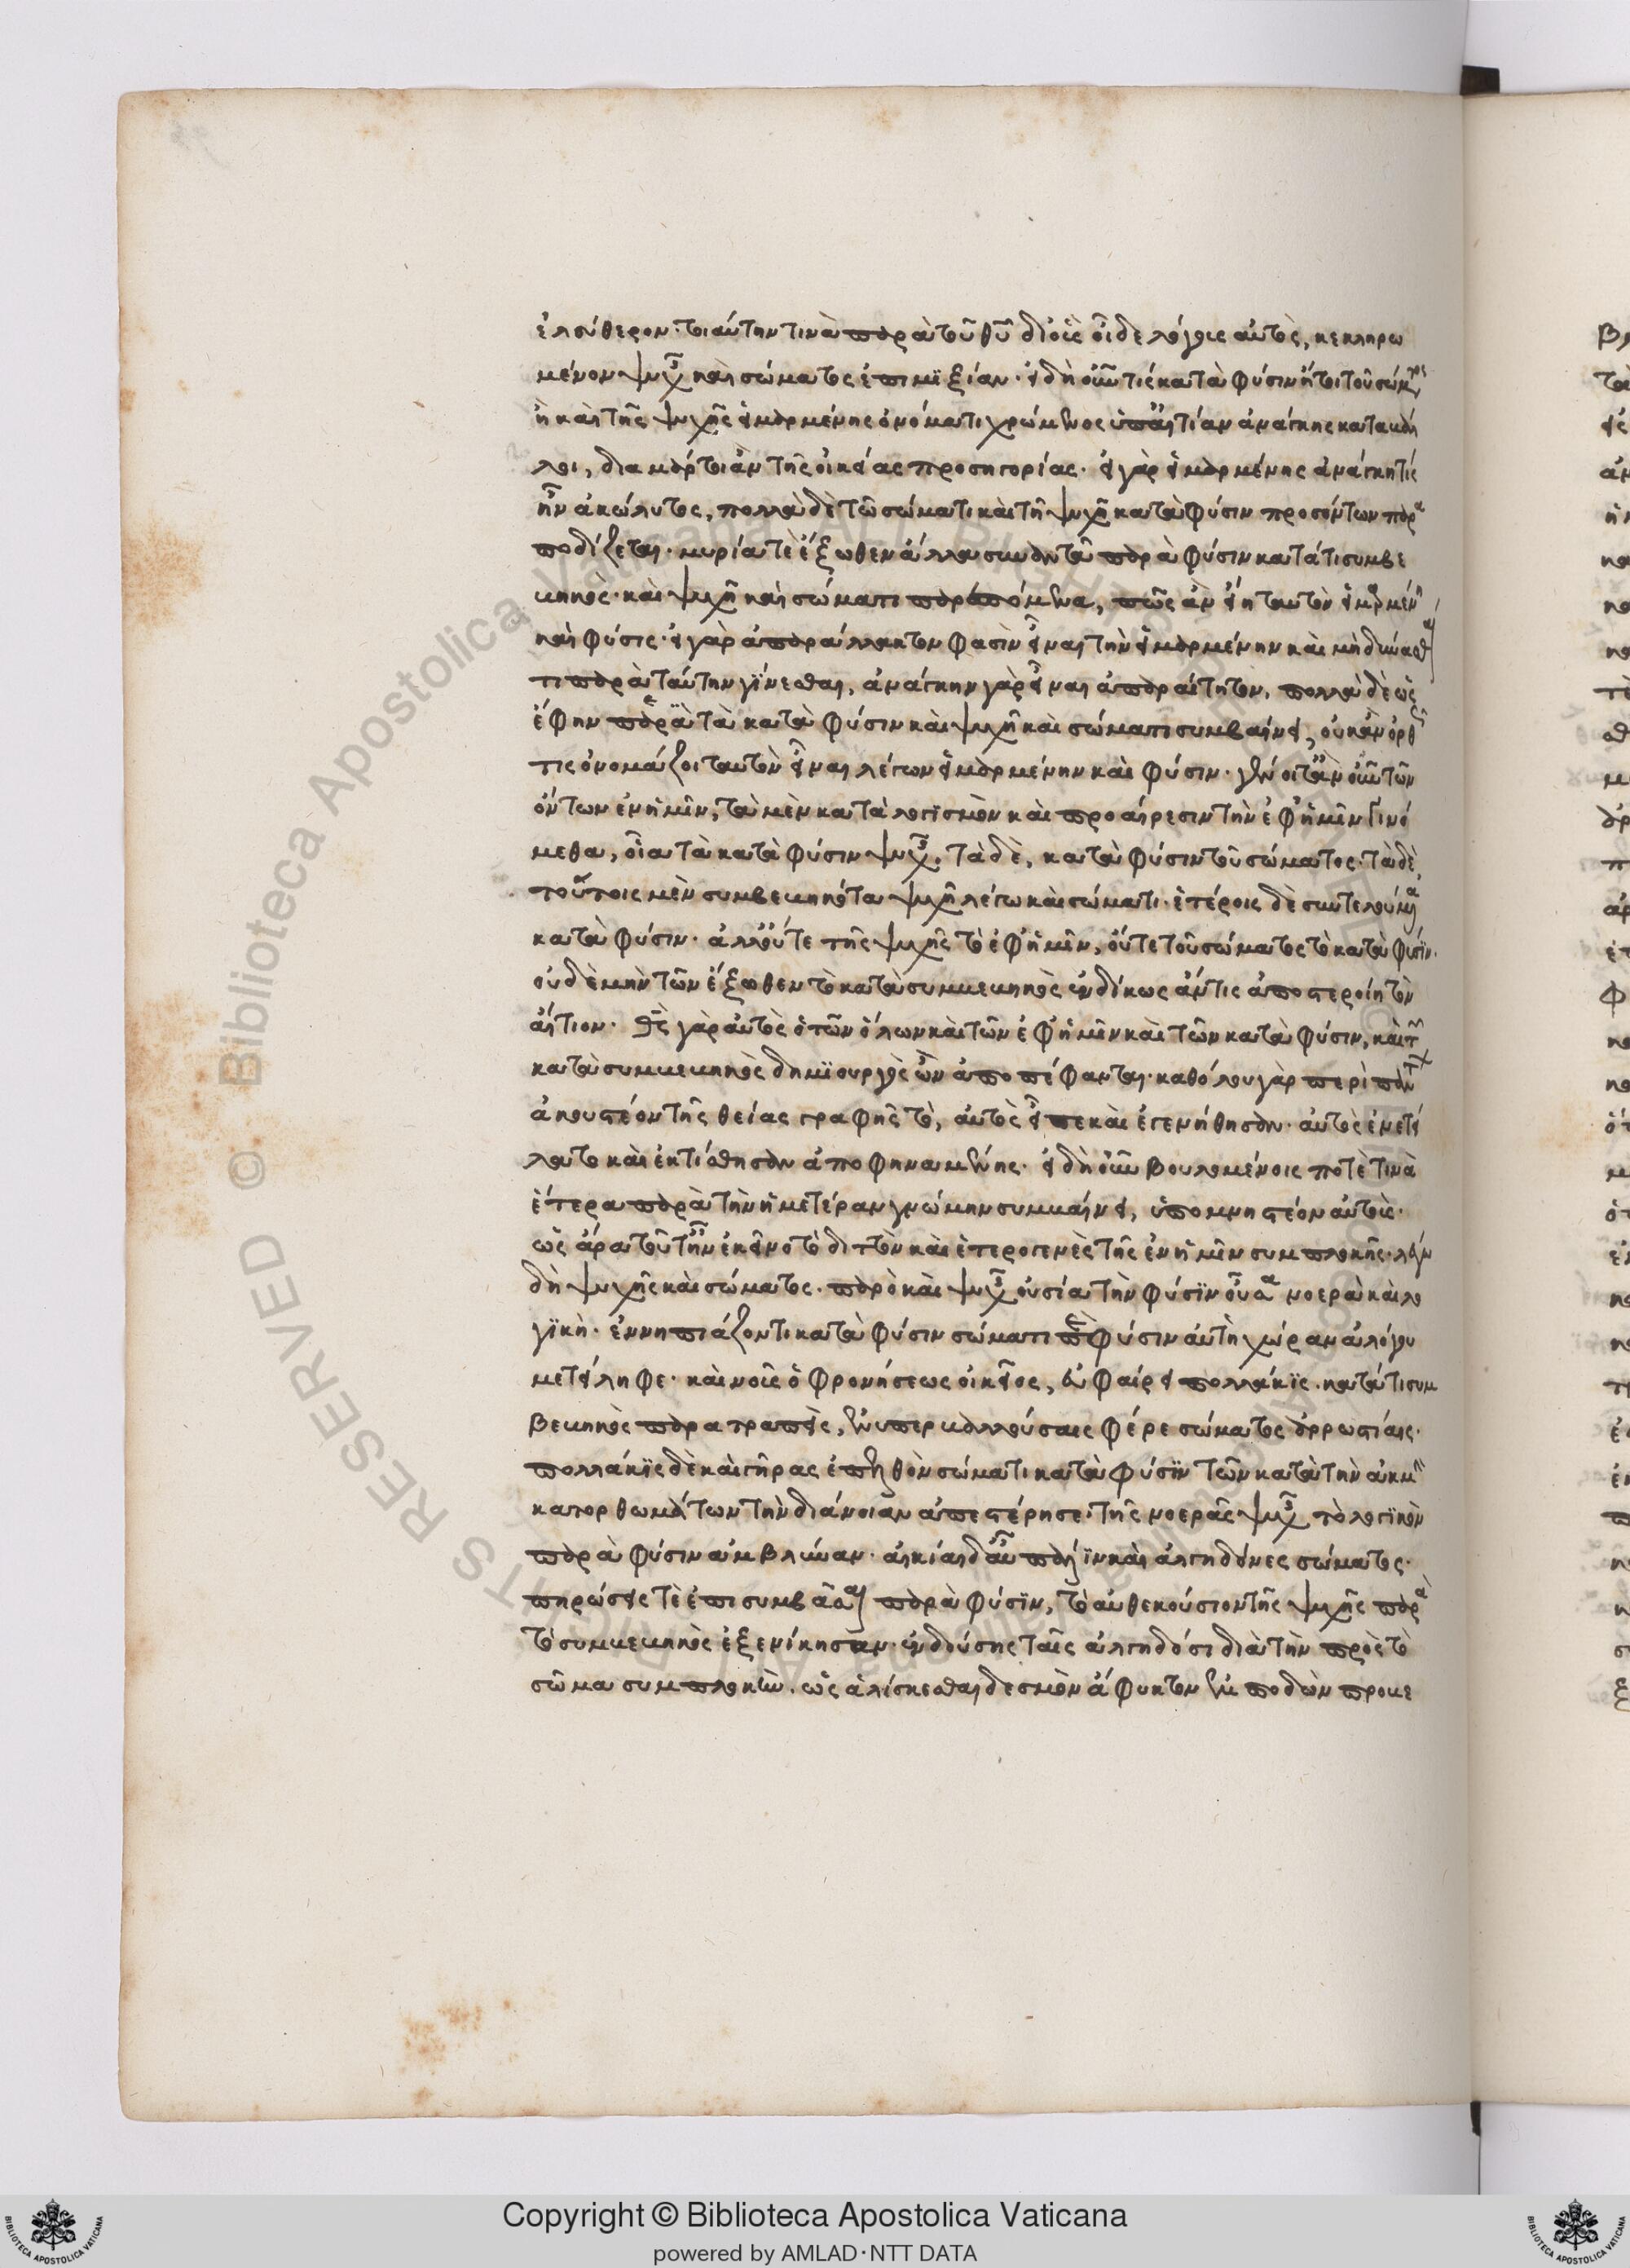 ἐλεύθερον· τοιαύτην τινὰ παρὰ τοῦ θυ δι οἷς οἶδε λόγοις αὐτὸς, κεκληρω
μένον ψυχ καὶ σώματος ἐπιμιξίαν· εἰ δὴ οὖν τις κατὰ φύσιν ἤτοι τοῦ σώματος
ἢ καὶ τῆς ψυχῆς εἱμαρμένης ὀνόματι χρώμενος ὑπ αἰτίαν ἀνάγκης καταδη
λοι, διαμάρτοι ἂν τῆς οἰκείας προσηγορίας· εἰ γὰρ εἱμαρμένης ἀνάγκη τίς
ἦν ἀκώλυτος, πολλὰ δὲ τῶ σώματι καὶ τῆ ψυχῆ κατὰ φύσιν προσόντων παρα
ποδίζεται· μυρία τὲ ἔξωθεν ἄλλα συναντᾶ παρὰ φύσιν κατά τι συμβε
βηκὸς· καὶ ψυχῆ καὶ σώματι παραπόμενα, πῶς ἂν εἴη ταυτὸν εἱμαρμένη
καὶ φύσις· εἰ γὰρ ἀπαράλλακτον φασὶν εἶναι τὴν εἱμαρμένην καὶ μὴ δύνασθαι
τι παρὰ ταύτην γίνεσθαι, ἀνάγκην γὰρ εἶναι ἀπαραίτητον, πολλὰ δὲ ὡς
ἔφην παρὰ τὰ κατὰ φύσιν καὶ ψυχῆ καὶ σώματι συμβαίνει, οὐκ ἂν ὀρθῶς
τις ὀνομάζοι ταυτὸν εἶναι λέγων εἱμαρμένην καὶ φύσιν· γένοιτ ἂν οὖν τῶν
ὄντων ἐν ἡμῖν, τὰ μὲν κατὰ λογισμὸν καὶ προαίρεσιν τὴν ἐφ ἡμῖν γινό
μεθα, οἷα τὰ κατὰ φύσιν ψυχ. τὰ δὲ, κατὰ φύσιν τοῦ σώματος· τὰ δὲ,
τούτοις μὲν συμβεβηκότα ψυχῆ λέγω καὶ σώματι· ἑτέροις δὲ συντελούμενα
κατὰ φύσιν· ἀλλ οὔτε τῆς ψυχῆς τὸ ἐφ ἡμῖν, οὔτε τοῦ σώματος τὸ κατὰ φύσιν·
οὐδὲ μὴν τῶν ἔξωθεν τὸ κατὰ συμβεβηκὸς ἐνδίκως ἄν τις ἀποστεροίη τὸν
αἴτιον· θς γὰρ αὐτὸς ὁ τῶν ὅλων καὶ τῶν ἐφ ἡμῖν καὶ τῶν κατὰ φύσιν, καὶ τῶν
κατὰ συμβεβηκὸς δημιουργὸς ὢν ἀποπέφανται· καθόλου γὰρ περὶ πάντων
ἀκουστέον τῆς θείας γραφῆς τὸ, αὐτὸς εἶπε καὶ ἐγενήθησαν· αὐτὸς ἐνετεί
λατο καὶ ἐκτίσθησαν ἀποφηναμένης· εἰ δὴ οὖν βουλομένοις ποτὲ τινὰ
ἕτερα παρὰ τὴν ἡμετέραν γνώμην συμβαίνει, ὑπομνηστέον αὐτοὺς·
ὡς ἄρα τοῦτ ἦν ἐκεῖνο τὸ διττὸν καὶ ἑτερογενὲς τῆς ἐν ἡμῖν συμπλοκῆς· λέγω
δὴ ψυχῆς καὶ σώματος. παρὸ καὶ ψυχ οὐσία τὴν φύσιν οὖσα νοερὰ καὶ λο
γικὴ· ἐννηπιάζοντι κατὰ φύσιν σώματι παρὰ φύσιν αὐτὴ χώραν ἀλόγου
μετείληφε· καὶ νοῦς ὁ φρονήσεως οἰκεῖος, ἀφαίρει πολλάκις. κατά τι συμ
βεβηκὸς παρατραπεὶς, ἐν ὑπερβαλλούσαις φέρε σώματος ἀρρωστίαις·
πολλάκις δὲ καὶ γῆρας ἐπελθὸν σώματι κατὰ φύσιν τῶν κατὰ τὴν ἀκμὴν
κατορθωμάτων τὴν διάνοιαν ἀπεστέρησε, τῆς νοερᾶς ψυχ τὸ λογικὸν
παρὰ φύσιν ἀμβλύναν· αἰκίαι δ αὖ πάλιν καὶ ἀλγηδόνες σώματος·
πηρώσεις τὲ ἐπισυμβᾶσαι παρὰ φύσιν, τὸ αὐθεκούσιον τῆς ψυχῆς παρὰ
τὸ συμβεβηκὸς ἐξενίκησαν· ἐνδούσης ταῖς ἀλγηδόσι διὰ τὴν πρὸς τὸ
σῶμα συμπλοκὴν. ὡς ἁλίσκεσθαι δεσμὸν ἄφυκτον ἐκ ποδῶν προβε
Copyright © Biblioteca Apostolica Vaticana
powered by AMLAD·NTT DATA